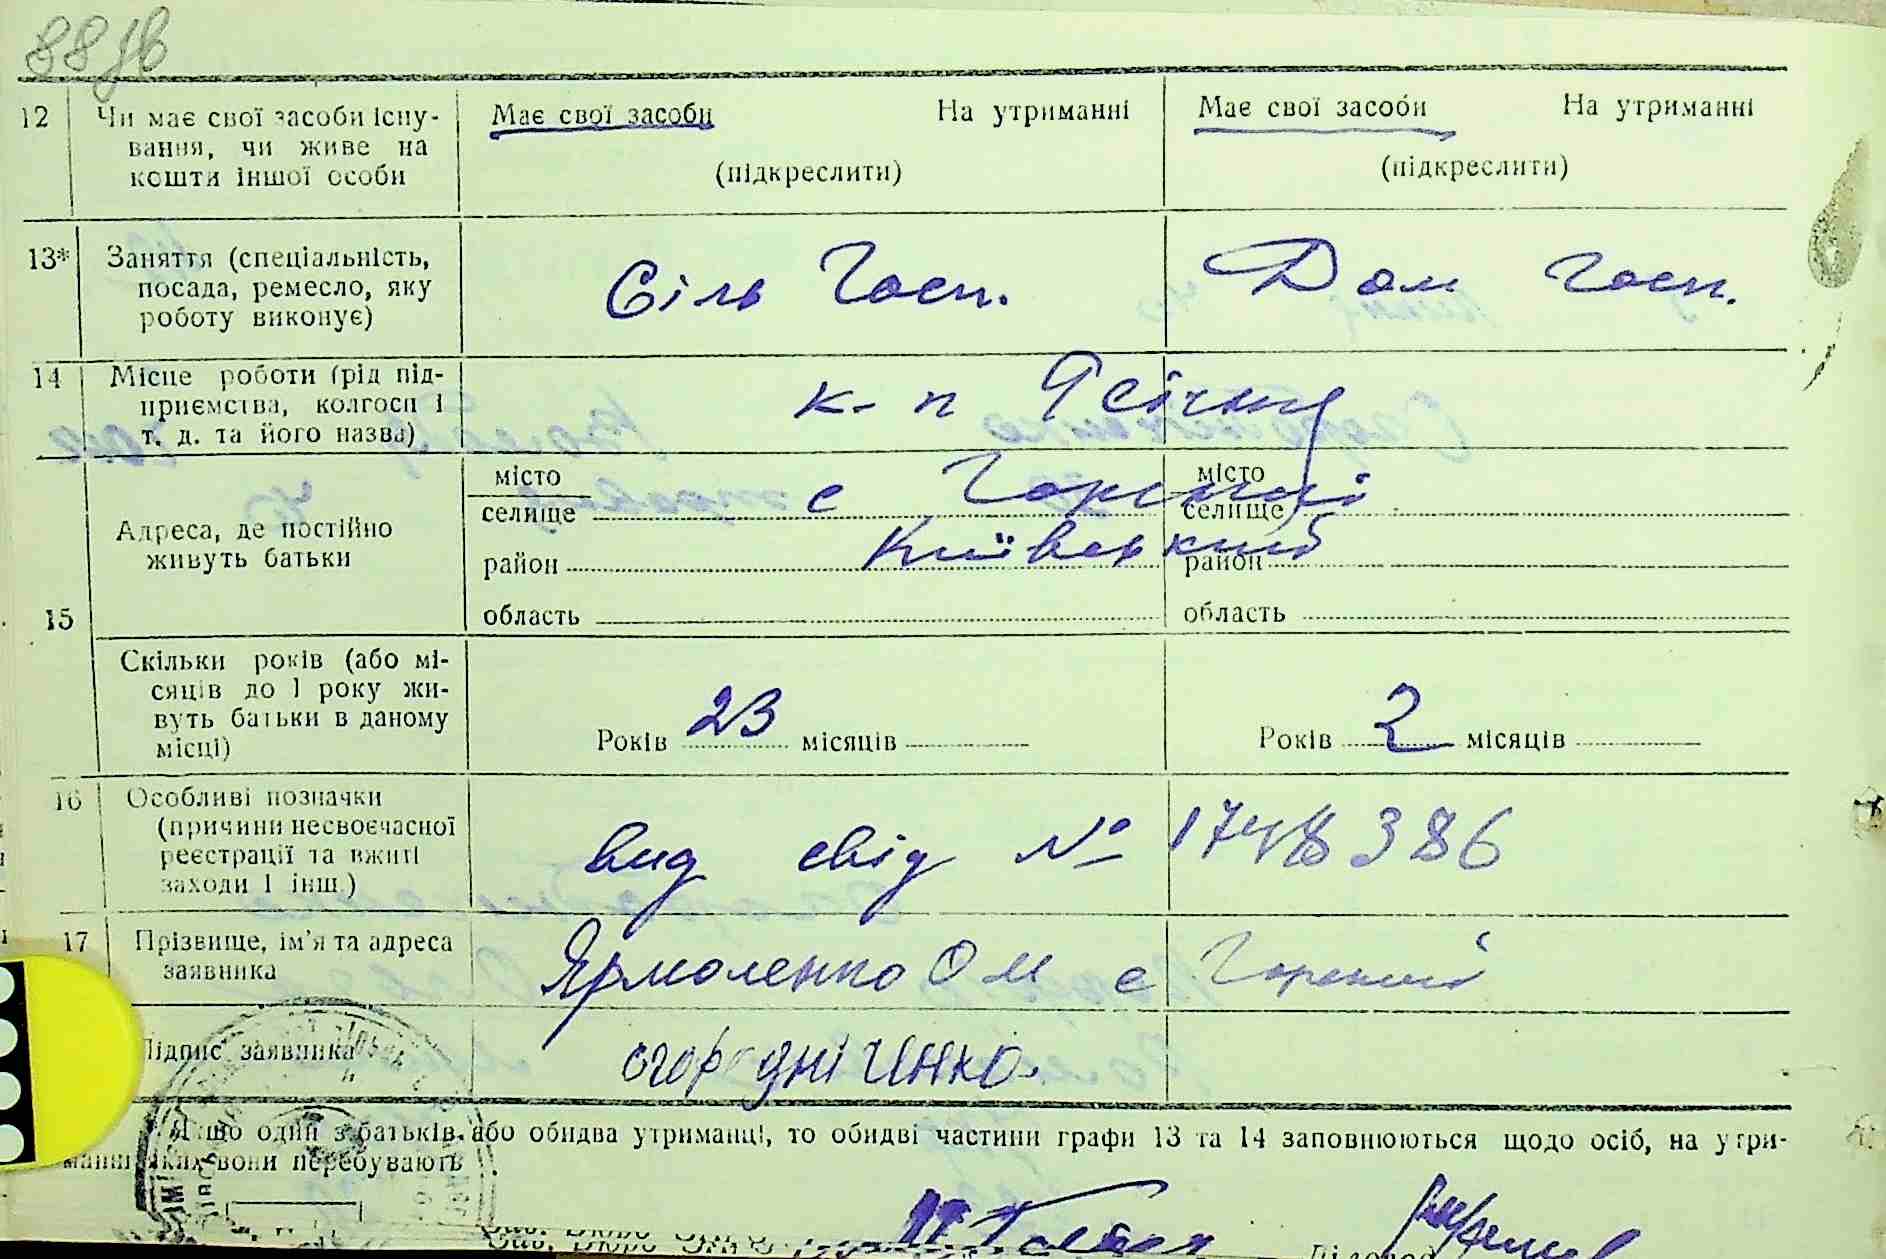 88зв
12 Чи має свої засоби існу- Має свої засоби На утриманні Має свої засоби На утриманні
вання, чи живе на
кошти іншої особи (підкреслити) (підкреслити)
13* Заняття (спеціальність,
посада, ремесло, яку Сіль Госп. Дом Госп.
роботу виконує)
14 Місце роботи (рід під-
приємства, колгосп і к-п 9 січня
т. д. та його назва)
місто місто
селище с Гореничі селище
Адреса, де постійно
живуть батьки район Київський район
15 область область
Скільки років (або мі-
сяців до 1 року жи-
вуть батьки в даному
місці) Років 23 місяців Років 2 місяців
16 Особливі позначки
(причини несвоєчасної
реєстрації та вжиті вид свід № 1748386
заходи і інш.)
17 Прізвище, ім'я та адреса
заявника Ярмоленко О М с Гореничі
Підпис заявника огородніЧИНКО.
Якщо один з батьків або обидва утриманці, то обидві частини графи 13 та 14 заповнюються щодо осіб, на утри-
манні яких вони перебувають
Зав. Бюро Діловод